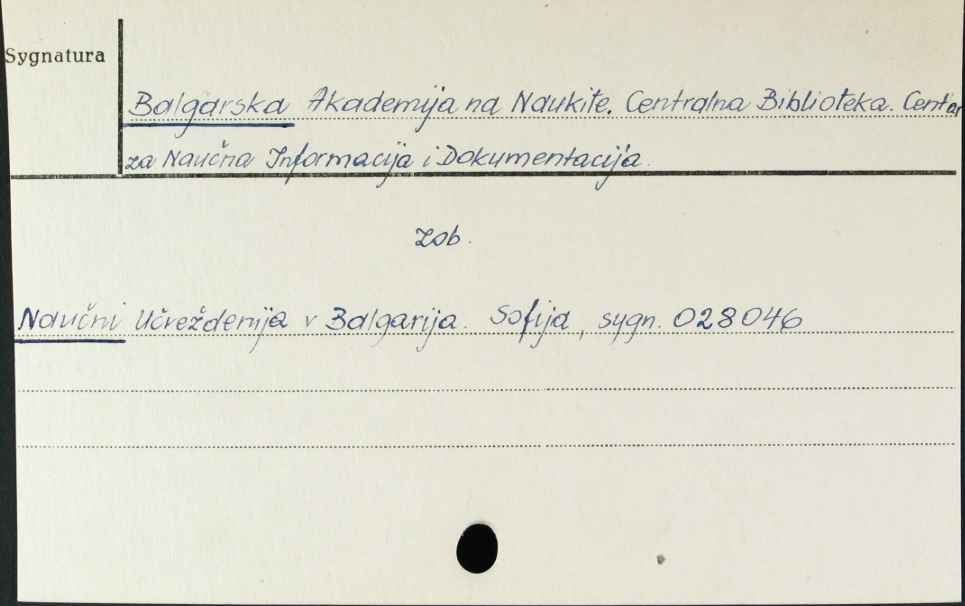 Sygnatura
Balgarska Akademija na Naukite. Centralna Biblioteka. Centar
za Naučna Informacija i Dokumentacija.
zob.
Naučni Učreždenija v Balgarija. Sofija, sygn. 028046